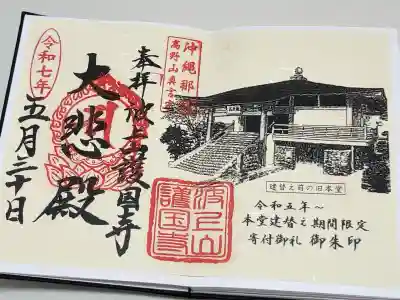 沖縄那覇
高野山真言宗
奉拝 波上山護国寺
大悲殿
令和七年
五月三十日
波上山
護国寺
建替え前の旧本堂
令和五年〜
本堂建替え期間限定
寄付御礼 御朱印